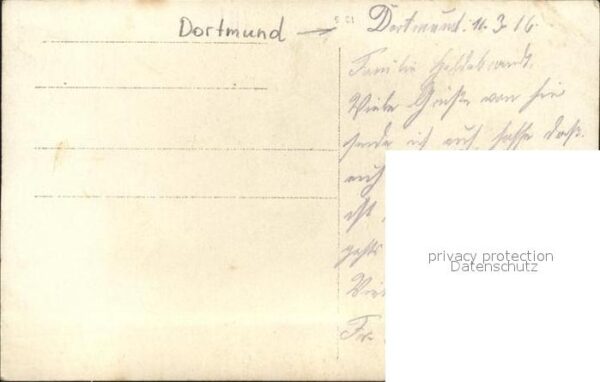 Dortmund → Dortmund. 11.3.16
Familie Hildebrandt.
Viele Grüße von hier
sende ich euch hoffe daß
euch
ist
gehts
Viel
Fr.
privacy protection
Datenschutz